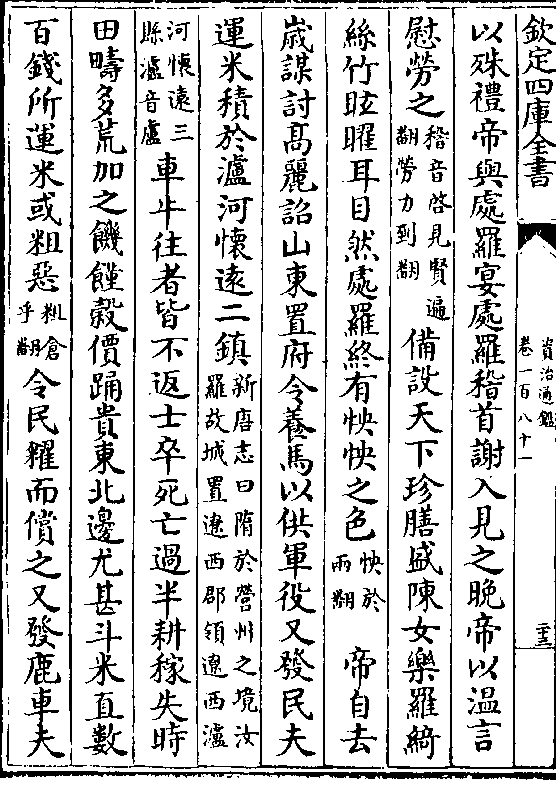 欽定四庫全書
資治通鑑
卷一百八十一
二十三
以殊禮帝與處羅宴處羅稽首謝入見之晚帝以温言
慰勞之
稽音啓見賢遍
翻勞力到翻
備設天下珍膳盛陳女樂羅綺
絲竹眩曜耳目然處羅終有怏怏之色
怏於
兩翻
帝自去
嵗謀討髙麗詔山東置府令養馬以供軍役又發民夫
運米積於瀘河懷遠二鎮
新唐志曰隋於營州之境汝
羅故城置遼西郡領遼西瀘
河懷遠三
縣瀘音盧
車牛往者皆不返士卒死亡過半耕稼失時
田疇多荒加之饑饉榖價踊貴東北邊尤甚斗米直數
百錢所運米或粗惡
粗倉
乎翻
令民糴而償之又發鹿車夫